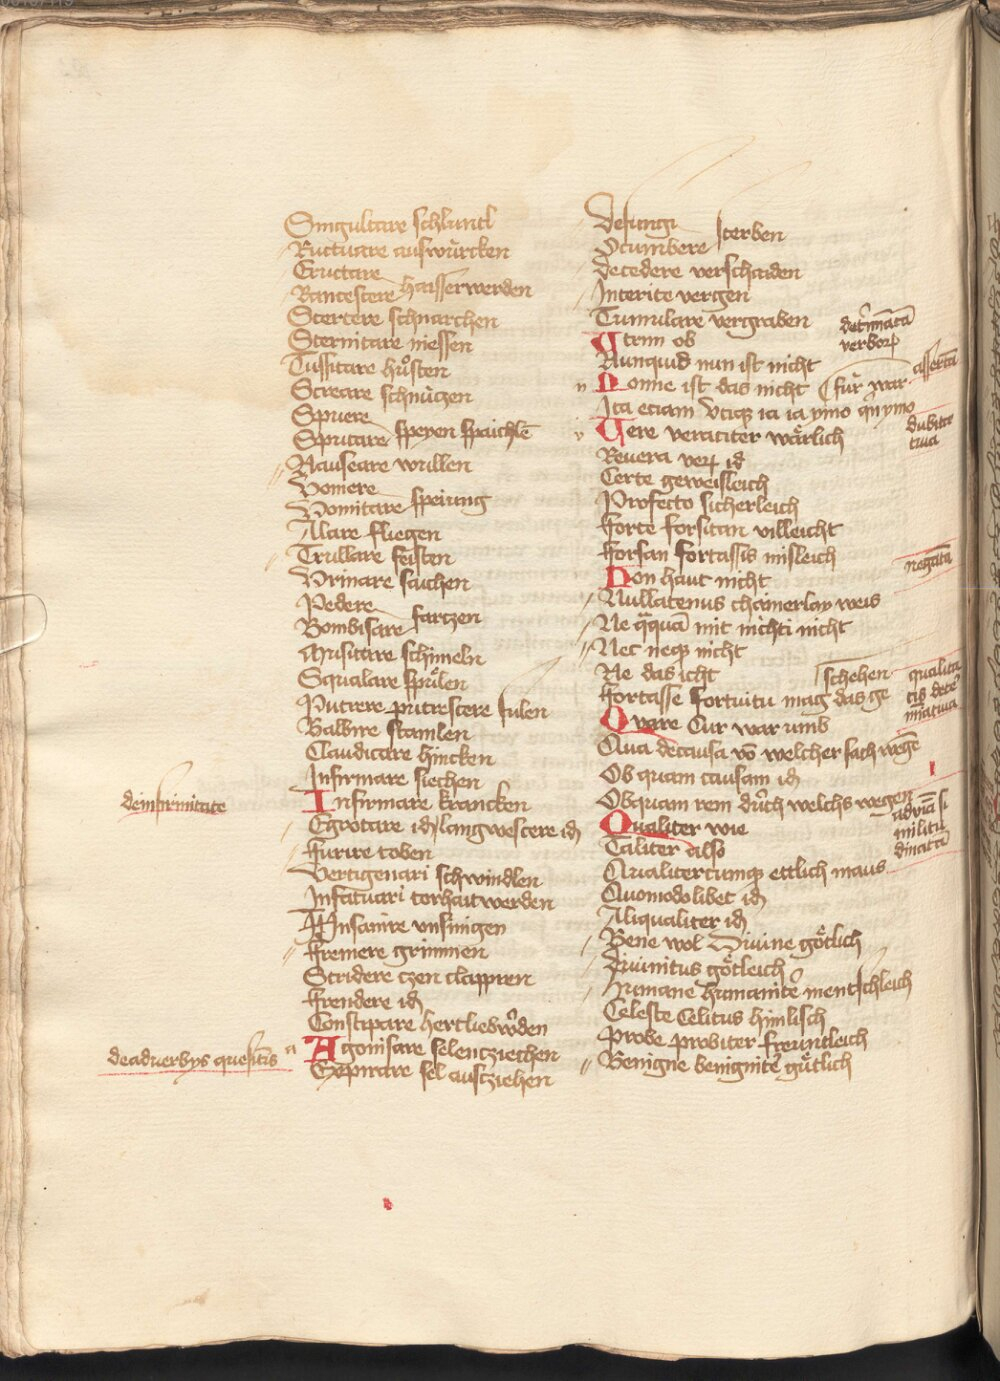 Singultare schluntl
Ructuare aufwürcken
Eructare
Rantescere haisserwerden
Stertere schnarchen
Sternitare niessen
Tussitare hůsten
Screare schnüczen
Spuere
Sputare speyen spaichlē
Nauseare wullen
Vomere
Vomitare speiung
Alare fliegen
Trullare feisten
Vrinare saichen
Pedere
Bombisare farczen
Musitare schimeln
Squalare spůlen
Putrere putrescere fulen
Balbire stamlen
Claudicare hincken
Infirmare siechen
deinfirmitate
Infirmare krancken
Egrotare id langwescere id
Furire toben
Vertigenari schwindlen
Infatuari torhautwerden
Insanire vnsinigen
Fremere grimmen
Stridere czen clappren
Frendere id
Constipare hertliebwôden
deaduerbys quesitis a
Agonisare selencziechen
Expirare sel ausziehen
Defungi
Ocumbere sterben
Decedere verschaiden
Interite vergen
Tumulare vergraben
Utrum ob
Nunquid nun ist nicht
n Nonne ist das nicht für war
Ita etiam Vtiq ia ia ymo qn ymo
v Vere veraciter wärlich
Reuera ver id
Certe geweisleich
Profecto sicherleich
Forte forsitan villeicht
Forsan fortassis misleich
Non haut nicht
Nullatenus chainerlay weis
Ne qqua mit nichti nicht
Nec neq nicht
Ne das icht
schehen
Fortasse fortuitu mag das ge
Quare Cur war umb
Qua decausa vō welcher sach wegē
Ob quam causam id
Obquam rem durch welchs wegen
Qualiter wie
Taliter also
Qualitercumq ettlich maus
Quomodolibet id
Aliqualiter id
Bene wol Diuine götlich
Diuinitus götleich
Humane humanitē mentschleich
Celeste Celitus himlisch
Probe probiter freuntleich
Benigne benignitē gütlich
verborum
dubita
tiua
qualita
militu